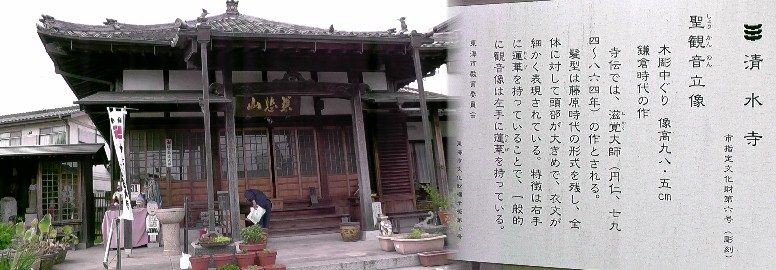 清水寺
市指定文化財第六号（彫刻）
しょうかんのん
聖観音立像
木彫中ぐり 像高九八・五cm
鎌倉時代の作
寺伝では、滋覚大師（円仁、七九
四〜八六四年）の作とされる。
髪型は藤原時代の形式を残し、全
体に対して頭部が大きめで、衣文が
細かく表現されている。特徴は右手
に蓮華を持っていることで、一般的
に観音像は左手に蓮華を持っている。
東海市教育委員会
慈悲山